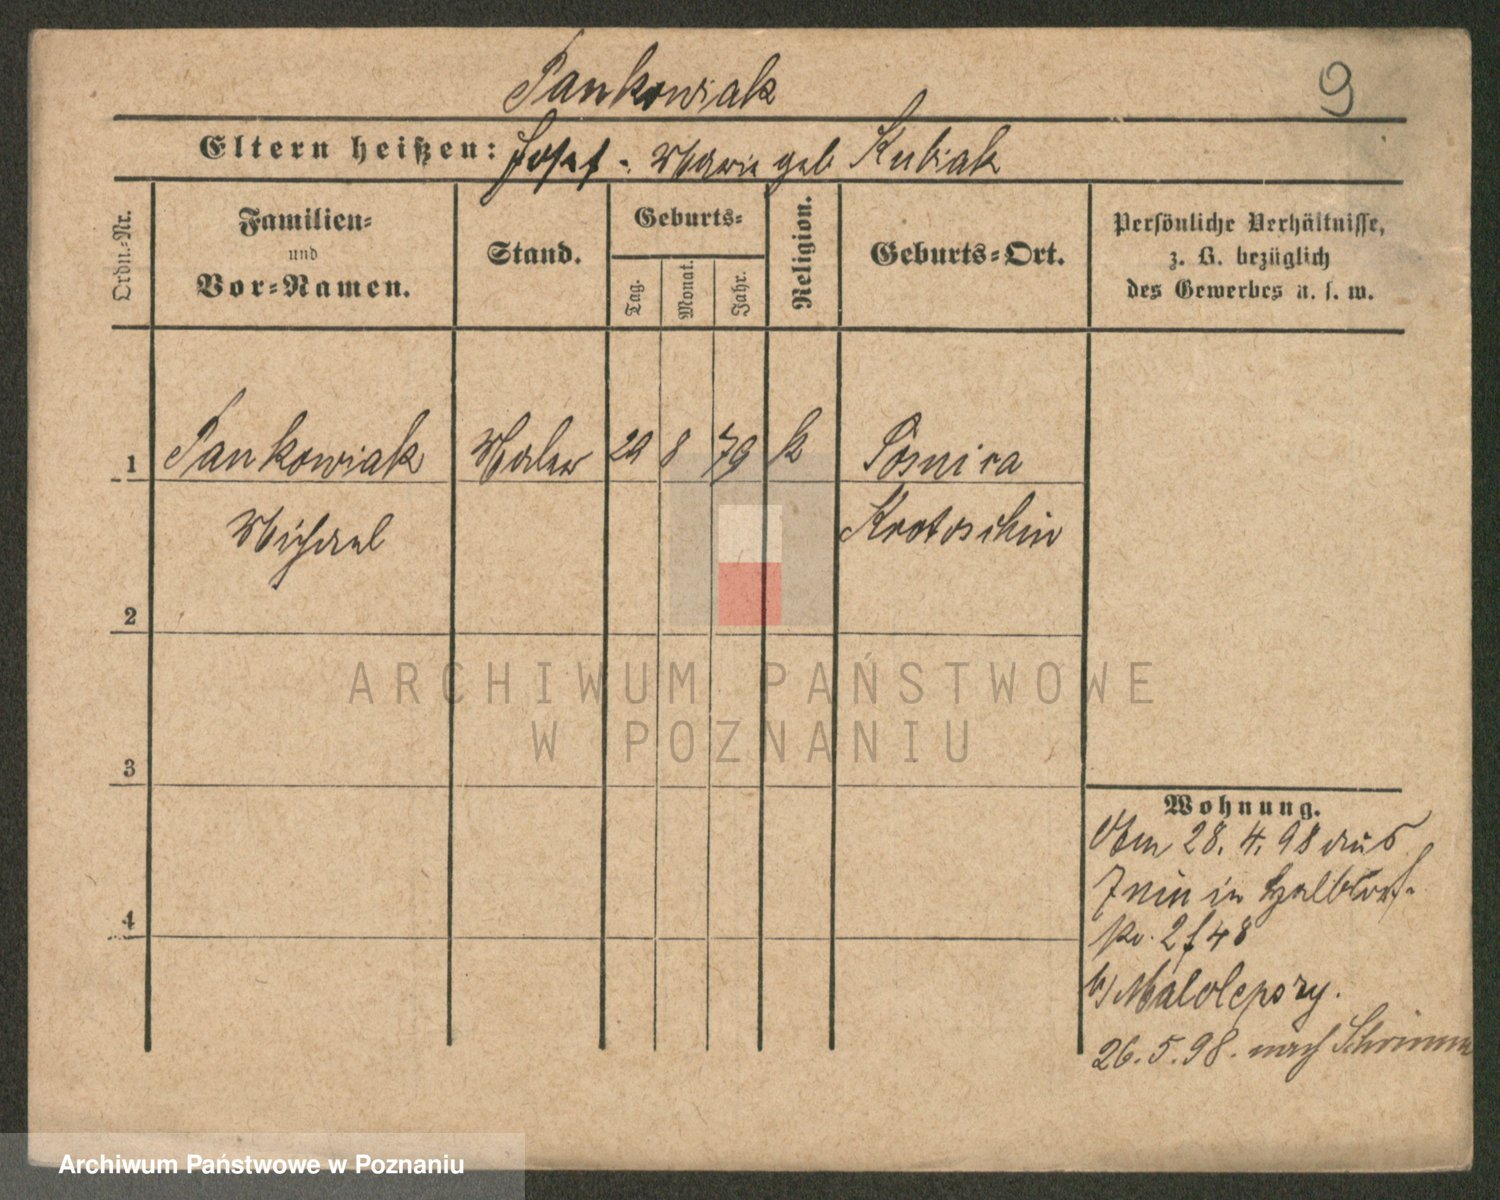 Pankowiak
9
Eltern heißen: Josef - Marie geb Kubiak
Ordn.-Nr.
Familien-
und
Vor-Namen.
Stand.
Geburts-
Tag.
Monat.
Jahr.
Religion.
Geburts-Ort.
Persönliche Verhältnisse,
z. B. bezüglich
des Gewerbes u. s. w.
1
Pankowiak
Maler
29
8
79
k
Michael
Krotoschin
2
ARCHIWUM PAŃSTWOWE
W POZNANIU
3
Wohnung.
28. 4. 98 aus
in
4
48
b/ Malolepszy.
26. 5. 98. nach Schrimm
Archiwum Państwowe w Poznaniu